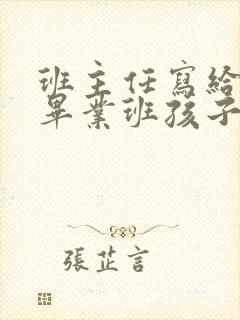 班主任寫給
畢業班孩子
張芷言